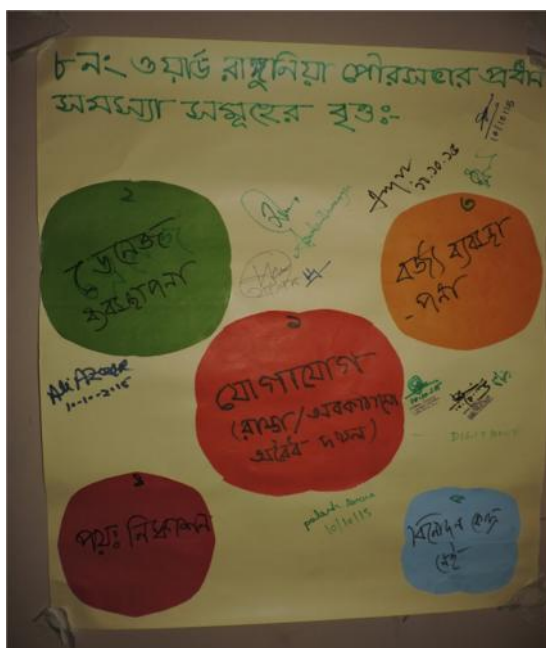 ৮ নং ওয়ার্ড রাঙ্গুনিয়া পৌরসভার প্রধান
সমস্যা সমূহের বৃত্তঃ-
১০/১০/১৫
২
ড্রেনেজ
ব্যবস্থাপনা
৩
বর্জ্য ব্যবস্থা
-পনা
১
যোগাযোগ
(রাস্তা/অবকাঠামো
অবৈধ দখল)
Ali Azgar
10-10-2015
৪
পয়ঃ নিষ্কাশন
palash
10/10/15
৫
বিনোদন কেন্দ্র
নেই